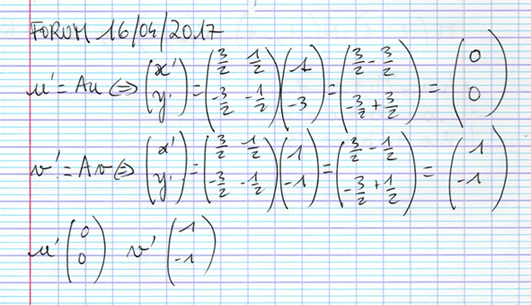 FORUM 16/04/2017
u' = Au ⇔ (x' y') = (3/2 1/2 -3/2 -1/2) (1 -3) = (3/2 - 3/2 -3/2 + 3/2) = (0 0)
v' = Av ⇔ (x' y') = (3/2 1/2 -3/2 -1/2) (1 -1) = (3/2 - 1/2 -3/2 + 1/2) = (1 -1)
u' (0 0) v' (1 -1)